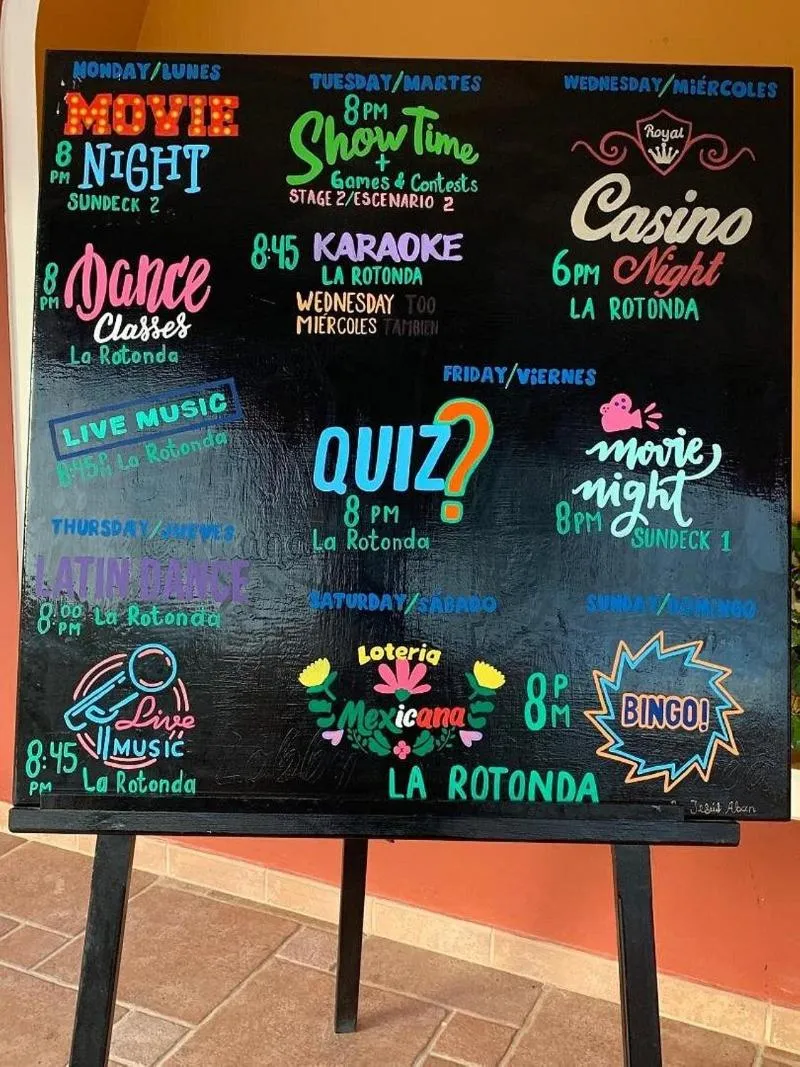 MONDAY/LUNES
MOVIE
8 PM NIGHT
SUNDECK 2
8 PM Dance
Classes
La Rotonda
LIVE MUSIC
8:45PM La Rotonda
TUESDAY/MARTES
8PM
Show Time
+
Games & Contests
STAGE 2/ESCENARIO 2
8:45 KARAOKE
LA ROTONDA
WEDNESDAY TOO
MIÉRCOLES TAMBIEN
WEDNESDAY/MIÉRCOLES
Royal
Casino
6PM Night
LA ROTONDA
THURSDAY/JUEVES
LATIN DANCE
8:00 PM La Rotonda
Live
MUSIC
8:45 PM La Rotonda
FRIDAY/VIERNES
QUIZ?
8 PM
La Rotonda
movie
night
8PM SUNDECK 1
SATURDAY/SÁBADO
Loteria
Mexicana
SUNDAY/DOMINGO
8PM BINGO!
LA ROTONDA
Jesús Aban